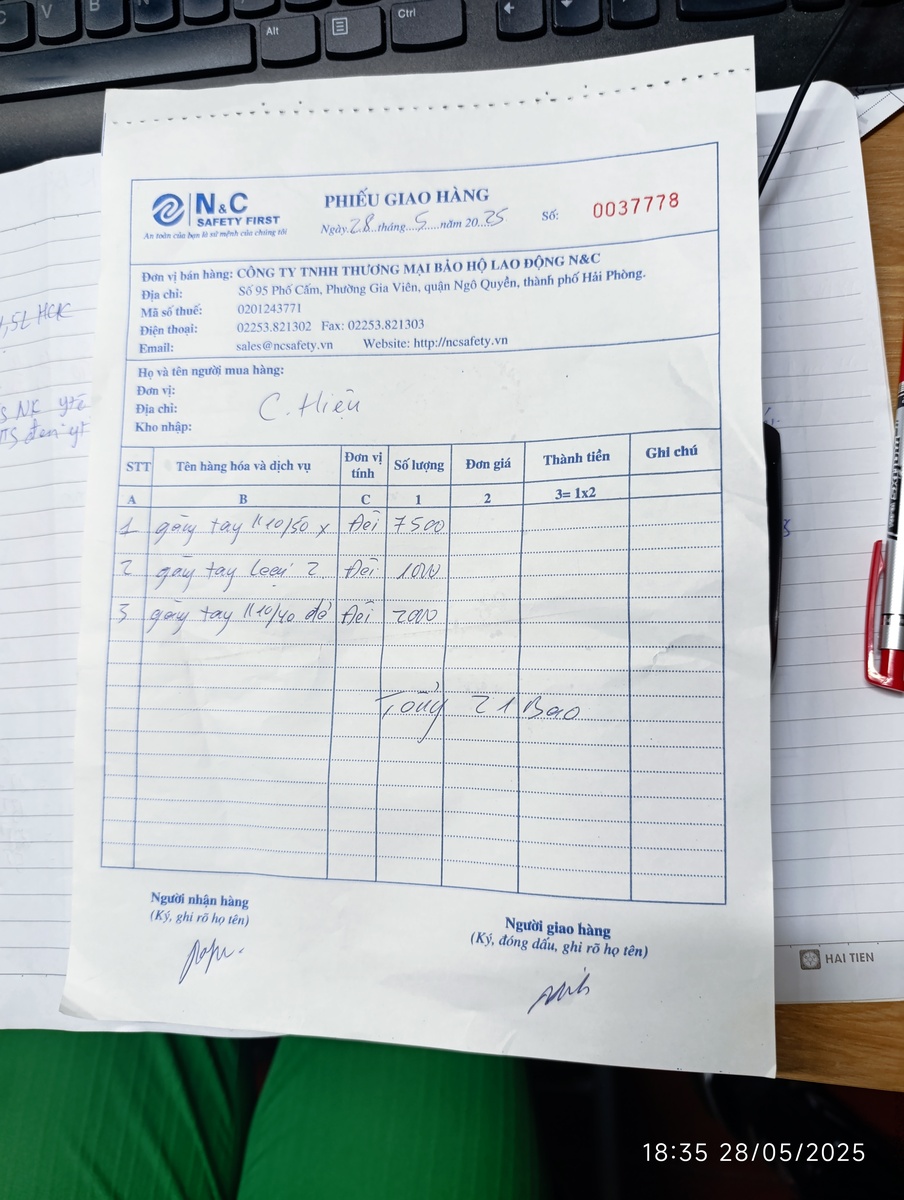 V
B
Alt
Ctrl
N&C
SAFETY FIRST
An toàn của bạn là sứ mệnh của chúng tôi
PHIẾU GIAO HÀNG
Ngày 28 tháng 5 năm 2025
Số: 0037778
Đơn vị bán hàng: CÔNG TY TNHH THƯƠNG MẠI BẢO HỘ LAO ĐỘNG N&C
Địa chỉ: Số 95 Phố Cấm, Phường Gia Viên, quận Ngô Quyền, thành phố Hải Phòng.
Mã số thuế: 0201243771
Điện thoại: 02253.821302 Fax: 02253.821303
Email: sales@ncsafety.vn Website: http://ncsafety.vn
Họ và tên người mua hàng:
Đơn vị:
Địa chỉ: C. Hiện
Kho nhập:
STT Tên hàng hóa và dịch vụ Đơn vị tính Số lượng Đơn giá Thành tiền Ghi chú
A B C 1 2 3= 1x2
1 găng tay K10/50 x Đôi 7500
2 găng tay len 2 Đôi 1000
3 găng tay K10/40 đỏ Đôi 2000
Tổng 21 Bao
Người nhận hàng
(Ký, ghi rõ họ tên)
Người giao hàng
(Ký, đóng dấu, ghi rõ họ tên)
HAI TIEN
18:35 28/05/2025